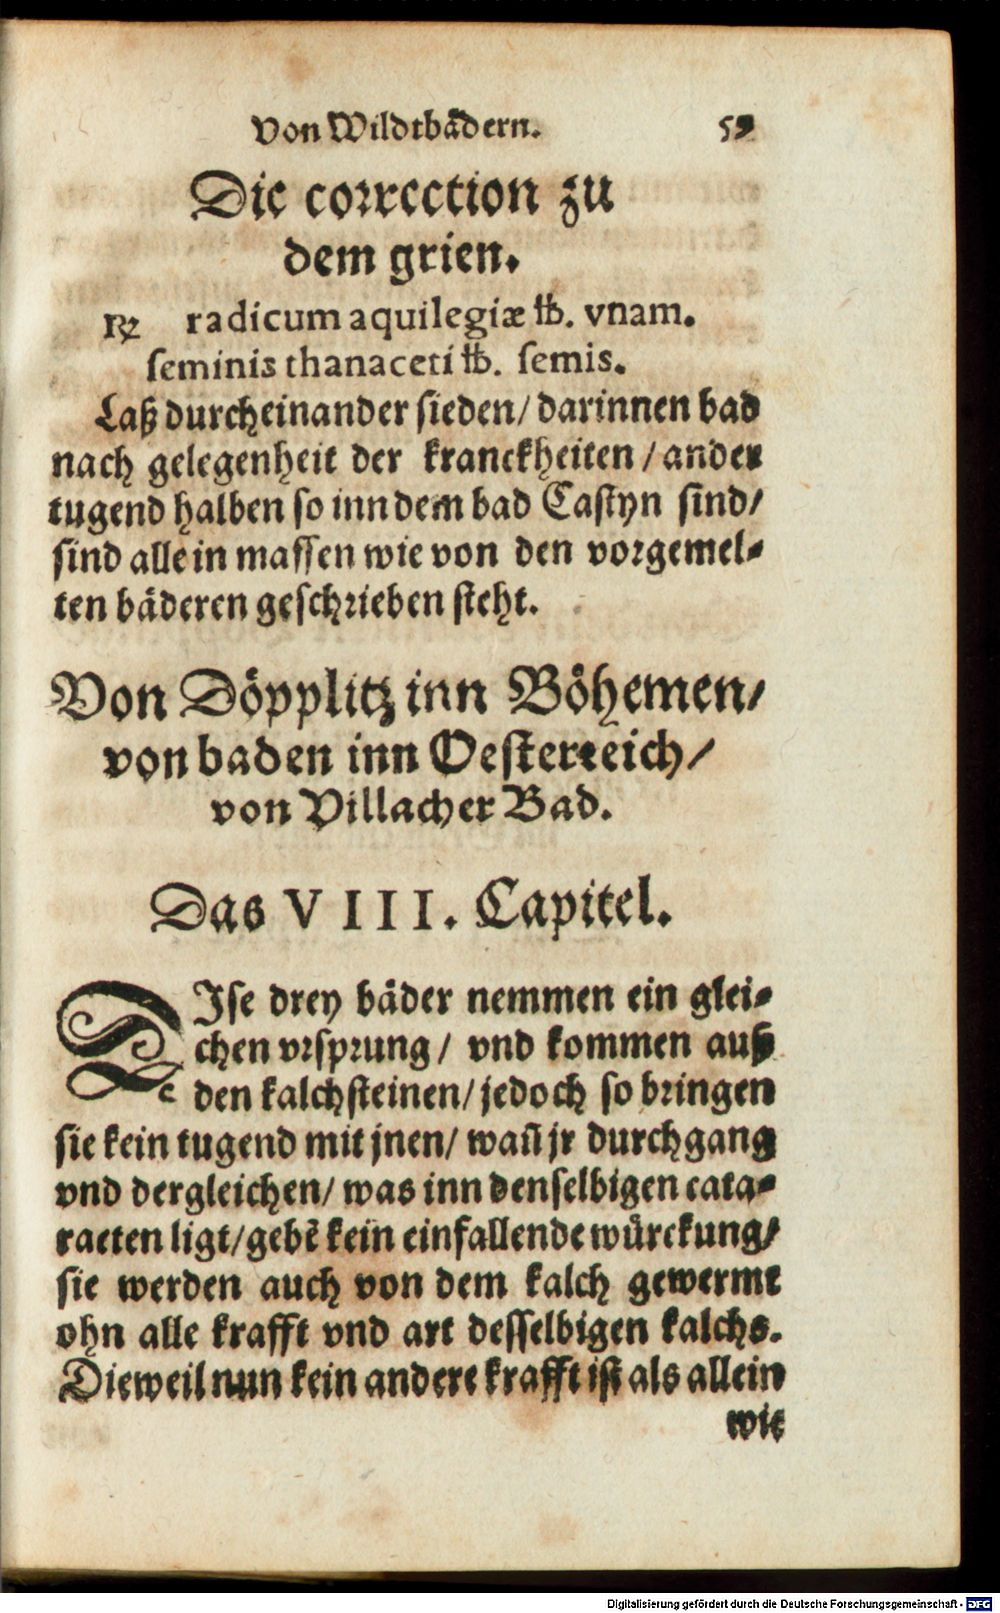 Von Wildtbädern. 59
Die correction zu
dem grien.
℞ radicum aquilegiæ ℔. vnam.
seminis thanaceti ℔. semis.
Laß durcheinander sieden/ darinnen bad
nach gelegenheit der kranckheiten / ander
tugend halben so inn dem bad Castyn sind/
sind alle in massen wie von den vorgemel-
ten bäderen geschrieben steht.
Von Döpplitz inn Böhemen/
von baden inn Oesterreich/
von Villacher Bad.
Das VIII. Capitel.
DIse drey bäder nemmen ein glei-
chen vrsprung/ vnd kommen auß
den kalchsteinen/ jedoch so bringen
sie kein tugend mit jnen/ wañ jr durchgang
vnd dergleichen/ was inn denselbigen cata-
racten ligt/ gebē kein einfallende würckung/
sie werden auch von dem kalch gewermt
ohn alle krafft vnd art desselbigen kalchs.
Dieweil nun kein andere krafft ist als allein
wie
Digitalisierung gefördert durch die Deutsche Forschungsgemeinschaft - DFG